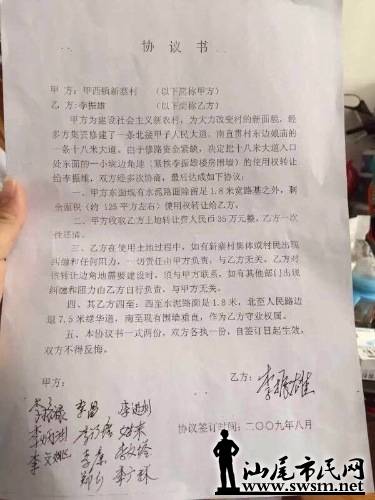 协议书
甲方：甲西镇新寨村 （以下简称甲方）
乙方：李振雄 （以下简称乙方）
甲方为建设社会主义新农村，为大力改变村的新面貌，经
多方集资修建了一条北接甲子人民大道，南直贯村东边娘庙的
一条十八米大道。由于修路资金紧缺，决定把十八米大道入口
处东面的一小块边角地（紧接李振雄楼房围墙）的使用权转让
给李振雄，双方经多次协商，最后达成如下协议：
一、甲方东面现有水泥路面除留足1.8米宽路基之外，剩
余面积（约125平方左右）使用权转让给乙方。
二、甲方收取乙方土地转让费人民币35万元整，乙方一次
性还清。
三、乙方在使用土地过程中，如有新寨村集体或村民出现
纠缠和任何阻力，一切责任由甲方负责，与乙方无关。乙方对
该转让边角地需要建设时，须与甲方联系，如有其他部门出现
纠缠和阻力由乙方自行负责，与甲方无关。
四、其乙方四至：西至水泥路面是1.8米，北至人民路边
是7.5米绿华道，南至现有围墙垂直，作为乙方守业权属。
五、本协议书一式两份，双方各执一份，自签订日起生效，
双方不得反悔。
甲方：
乙方：李振雄
李昌
协议签订时间：二〇〇九年八月
汕尾市民网
www.swsm.net